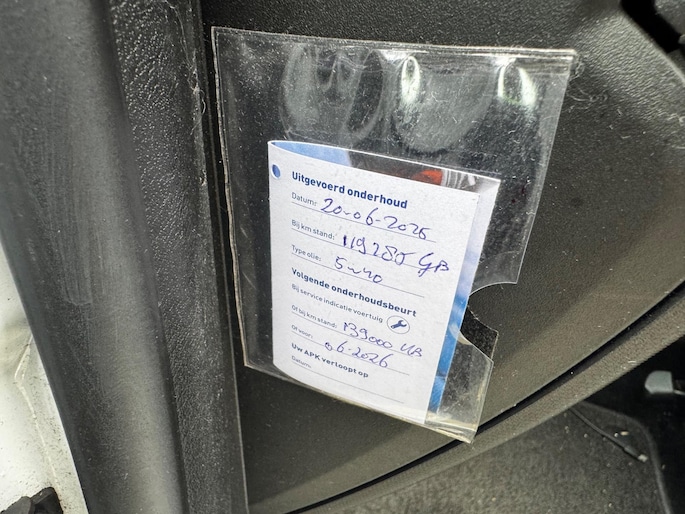 Uitgevoerd onderhoud
Datum: 20-06-2025
Bij km stand: 119285 GB
Type olie: 5w40
Volgende onderhoudsbeurt
Bij service indicatie voertuig
Of bij km stand: 139000
Of voor: 06-2026
Uw APK verloopt op
Datum: